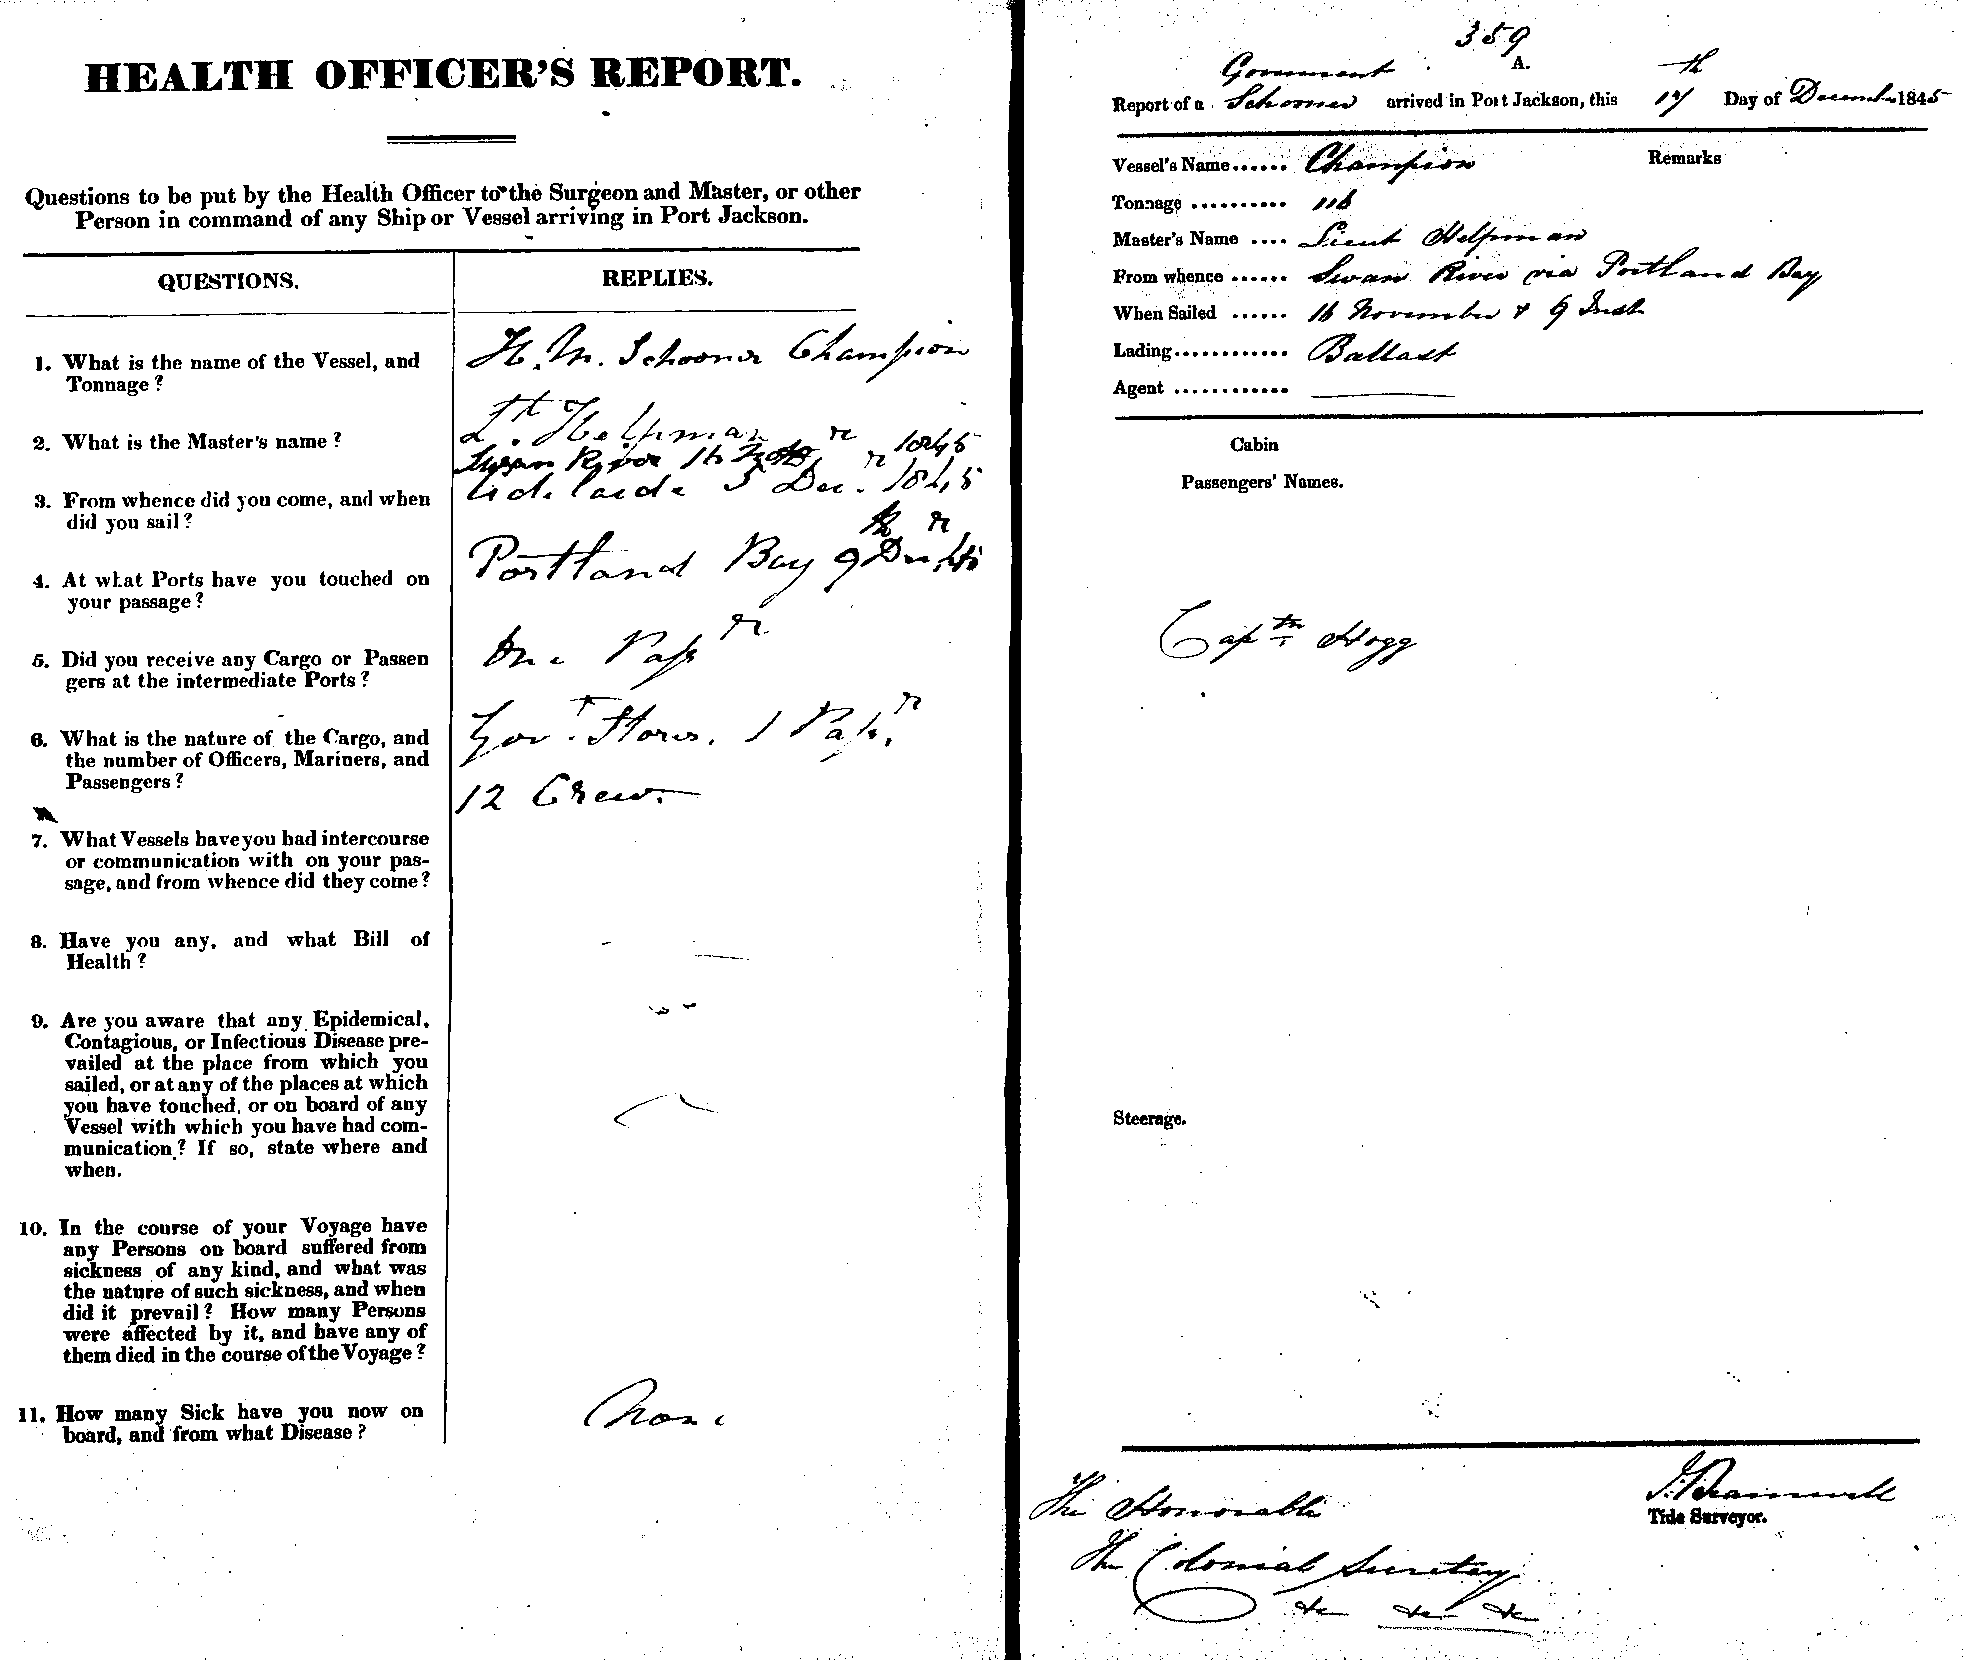 HEALTH OFFICER'S REPORT.
Questions to be put by the Health Officer to the Surgeon and Master, or other
Person in command of any Ship or Vessel arriving in Port Jackson.
QUESTIONS. REPLIES.
1. What is the name of the Vessel, and
Tonnage?
H. M. Schooner Champion
2. What is the Master's name?
Lt. Helpman
3. From whence did you come, and when
did you sail?
Swan River 16 Novr 1845
Adelaide 5 Decr 1845
4. At what Ports have you touched on
your passage?
Portland Bay 9th Decr 45
5. Did you receive any Cargo or Passen
gers at the intermediate Ports?
One Passr
6. What is the nature of the Cargo, and
the number of Officers, Mariners, and
Passengers?
Govt. Stores. 1 Passr.
12 Crew.
7. What Vessels have you had intercourse
or communication with on your pas-
sage, and from whence did they come?
8. Have you any, and what Bill of
Health?
9. Are you aware that any Epidemical,
Contagious, or Infectious Disease pre-
vailed at the place from which you
sailed, or at any of the places at which
you have touched, or on board of any
Vessel with which you have had com-
munication? If so, state where and
when.
10. In the course of your Voyage have
any Persons on board suffered from
sickness of any kind, and what was
the nature of such sickness, and when
did it prevail? How many Persons
were affected by it, and have any of
them died in the course of the Voyage?
11. How many Sick have you now on
board, and from what Disease?
None
359
A.
Government
Report of a Schooner arrived in Port Jackson, this 17th Day of December 1845
Vessel's Name...... Champion Remarks
Tonnage .......... 116
Master's Name .... Lieut Helpman
From whence ...... Swan River via Portland Bay
When Sailed ...... 16 November & 9 Inst
Lading............ Ballast
Agent ............
Cabin
Passengers' Names.
Captn Hogg
Steerage.
The Honorable
The Colonial Secretary
&c &c &c
Tide Surveyor.